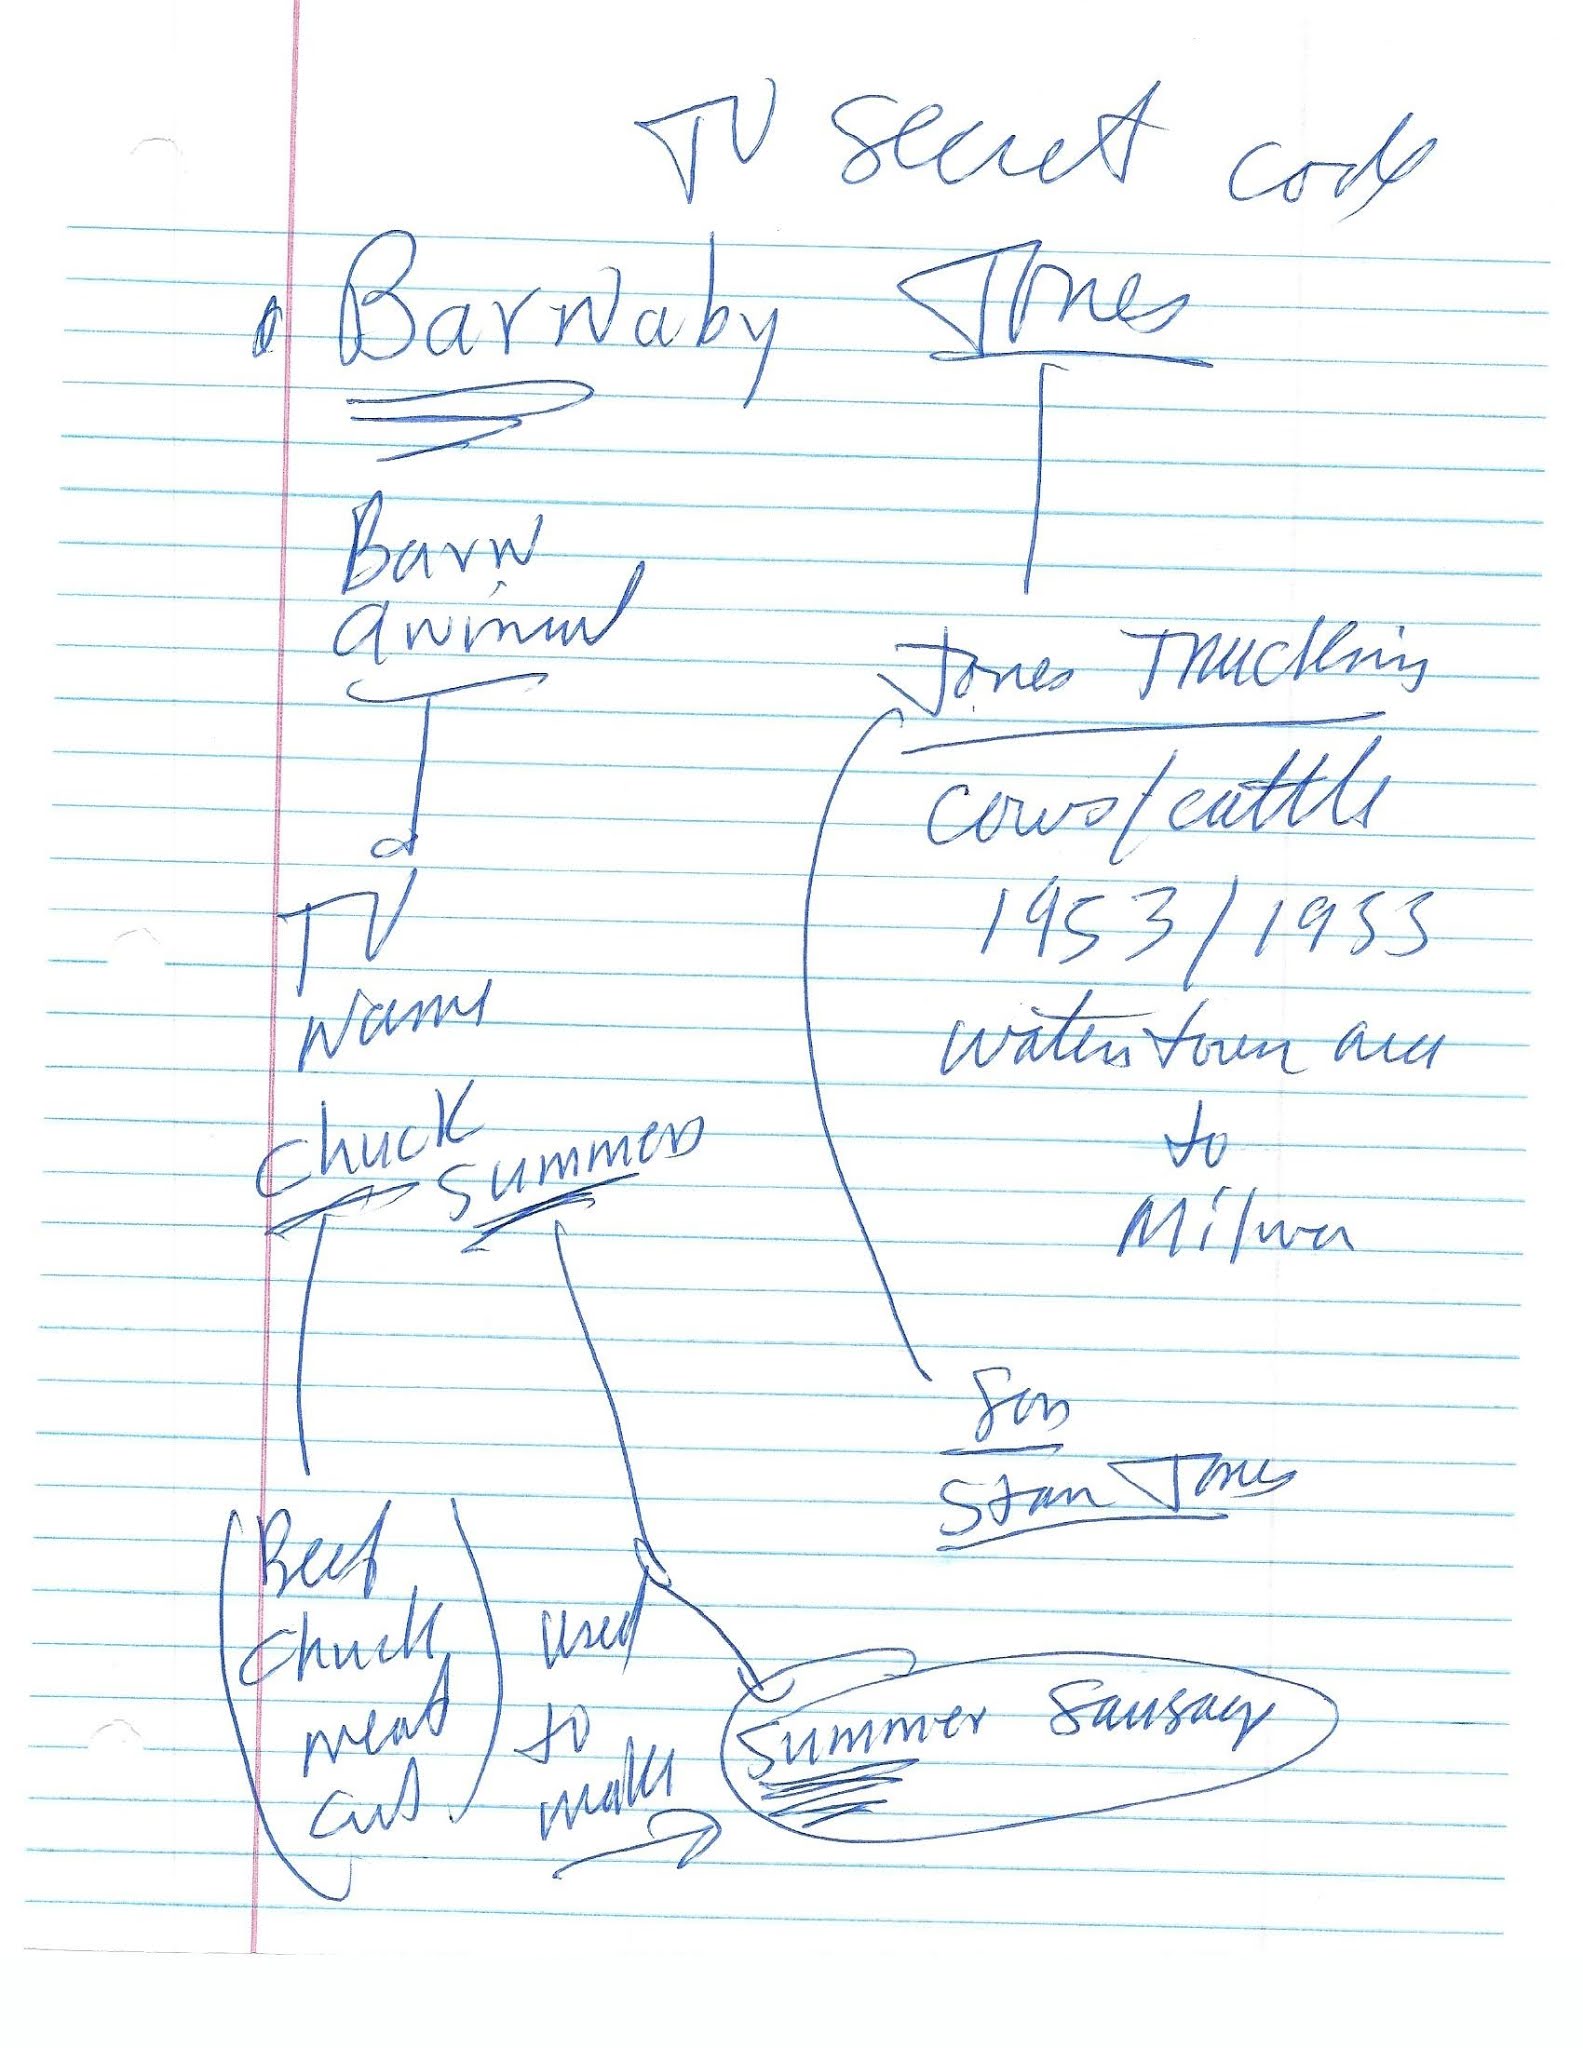 TV Secret Code
Barnaby Jones
Barn
animal
TV
Name
Chuck Summers
Beef
chuck
meat
cut
used
to
make
Summer Sausage
Jones Trucking
cows/cattle
1953/1953
Watertown area
to
Milwa
Son
Stan Jones